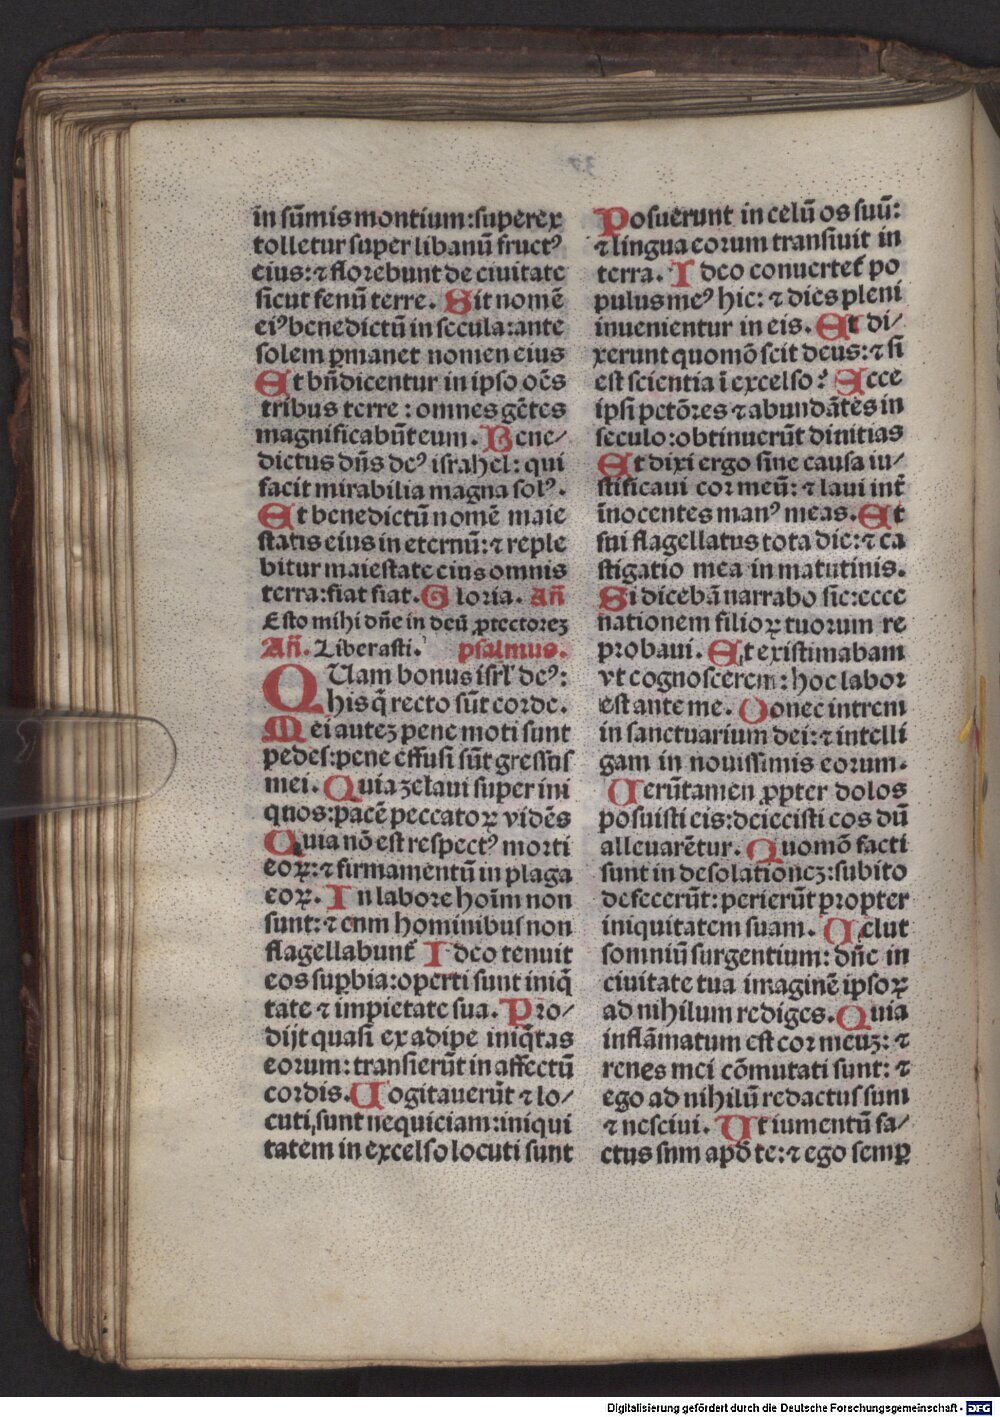 in sūmis montium:superex
tolletur super libanū fructꝰ
eius:⁊ florebunt de ciuitate
sicut fenū terre. Sit nomē
eiꝰ benedictū in secula:ante
solem ꝑmanet nomen eius
Et bn̄dicentur in ipso oēs
tribus terre : omnes gētes
magnificabūt eum. Bene/
dictus dn̄s deꝰ israhel: qui
facit mirabilia magna solꝰ.
Et benedictū nomē maie
statis eius in eternū: ⁊ reple
bitur maiestate eius omnis
terra:fiat fiat. Gloria. Añ
Esto mihi dn̄e in deū ꝓtectoreꝫ
Añ. Liberasti. psalmus.
QUam bonus isrl̄ deꝰ:
his q̄ recto sūt corde.
Mei auteꝫ pene moti sunt
pedes:pene effusi sūt gressus
mei. Quia zelaui super ini
quos:pacē peccatoꝝ vidēs
Quia nō est respectꝰ morti
eoꝝ:⁊ firmamentū in plaga
eoꝝ. In labore hoīm non
sunt: ⁊ cum hominibus non
flagellabunt̄ Ideo tenuit
eos suꝑbia:operti sunt iniq̄
tate ⁊ impietate sua. Pro/
dijt quasi ex adipe iniq̄tas
eorum: transierūt in affectū
cordis. Cogitauerūt ⁊ lo/
cuti sunt nequiciam:iniqui
tatem in excelso locuti sunt
Posuerunt in celū os suū:
⁊ lingua eorum transiuit in
terra. Ideo conuertet̄ po
pulus meꝰ hic: ⁊ dies pleni
inuenientur in eis. Et di/
xerunt quomō scit deus:⁊ si
est scientia ī excelso? Ecce
ipsi pctōres ⁊ abundātes in
seculo:obtinuerūt diuitias
Et dixi ergo sine causa iu/
stificaui cor meū: ⁊ laui int̄
īnocentes manꝰ meas. Et
fui flagellatus tota die:⁊ ca
stigatio mea in matutinis.
Si dicebā narrabo sic:ecce
nationem filioꝝ tuorum re
probaui. Existimabam
vt cognoscerem: hoc labor
est ante me. Donec intrem
in sanctuarium dei:⁊ intelli
gam in nouissimis eorum.
Uerūtamen ꝓpter dolos
posuisti eis:deiecisti eos dū
alleuarētur. Quomō facti
sunt in desolationeꝫ:subito
defecerūt: perierūt propter
iniquitatem suam. Uelut
somniū surgentium: dn̄e in
ciuitate tua imaginē ipsoꝝ
ad nihilum rediges. Quia
inflāmatum est cor meuꝫ: ⁊
renes mei cōmutati sunt: ⁊
ego ad nihilū redactus sum
⁊ nesciui. Ut iumentū fa/
ctus sum apō te:⁊ ego semꝑ
Digitalisierung gefördert durch die Deutsche Forschungsgemeinschaft - DFG